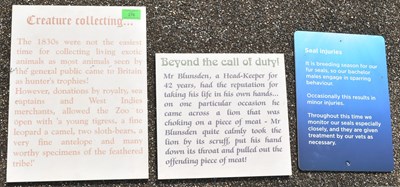 Creature collecting...
274
The 1830s were not the easiest
time for collecting living exotic
animals as most animals seen by
the general public came to Britain
as hunter's trophies!
However, donations by royalty, sea
captains and West Indies
merchants, allowed the Zoo to
open with 'a young tigress, a fine
leopard a camel, two sloth-bears, a
very fine antelope and many
worthy specimens of the feathered
tribe!'
Beyond the call of duty!
Mr Blunsden, a Head-Keeper for
42 years, had the reputation for
taking his life in his own hands...
on one particular occasion he
came across a lion that was
choking on a piece of meat - Mr
Blunsden quite calmly took the
lion by its scruff, put his hand
down its throat and pulled out the
offending piece of meat!
Seal injuries
It is breeding season for our
fur seals, so our bachelor
males engage in sparring
behaviour.
Occasionally this results in
minor injuries.
Throughout this time we
monitor our seals especially
closely, and they are given
treatment by our vets as
necessary.